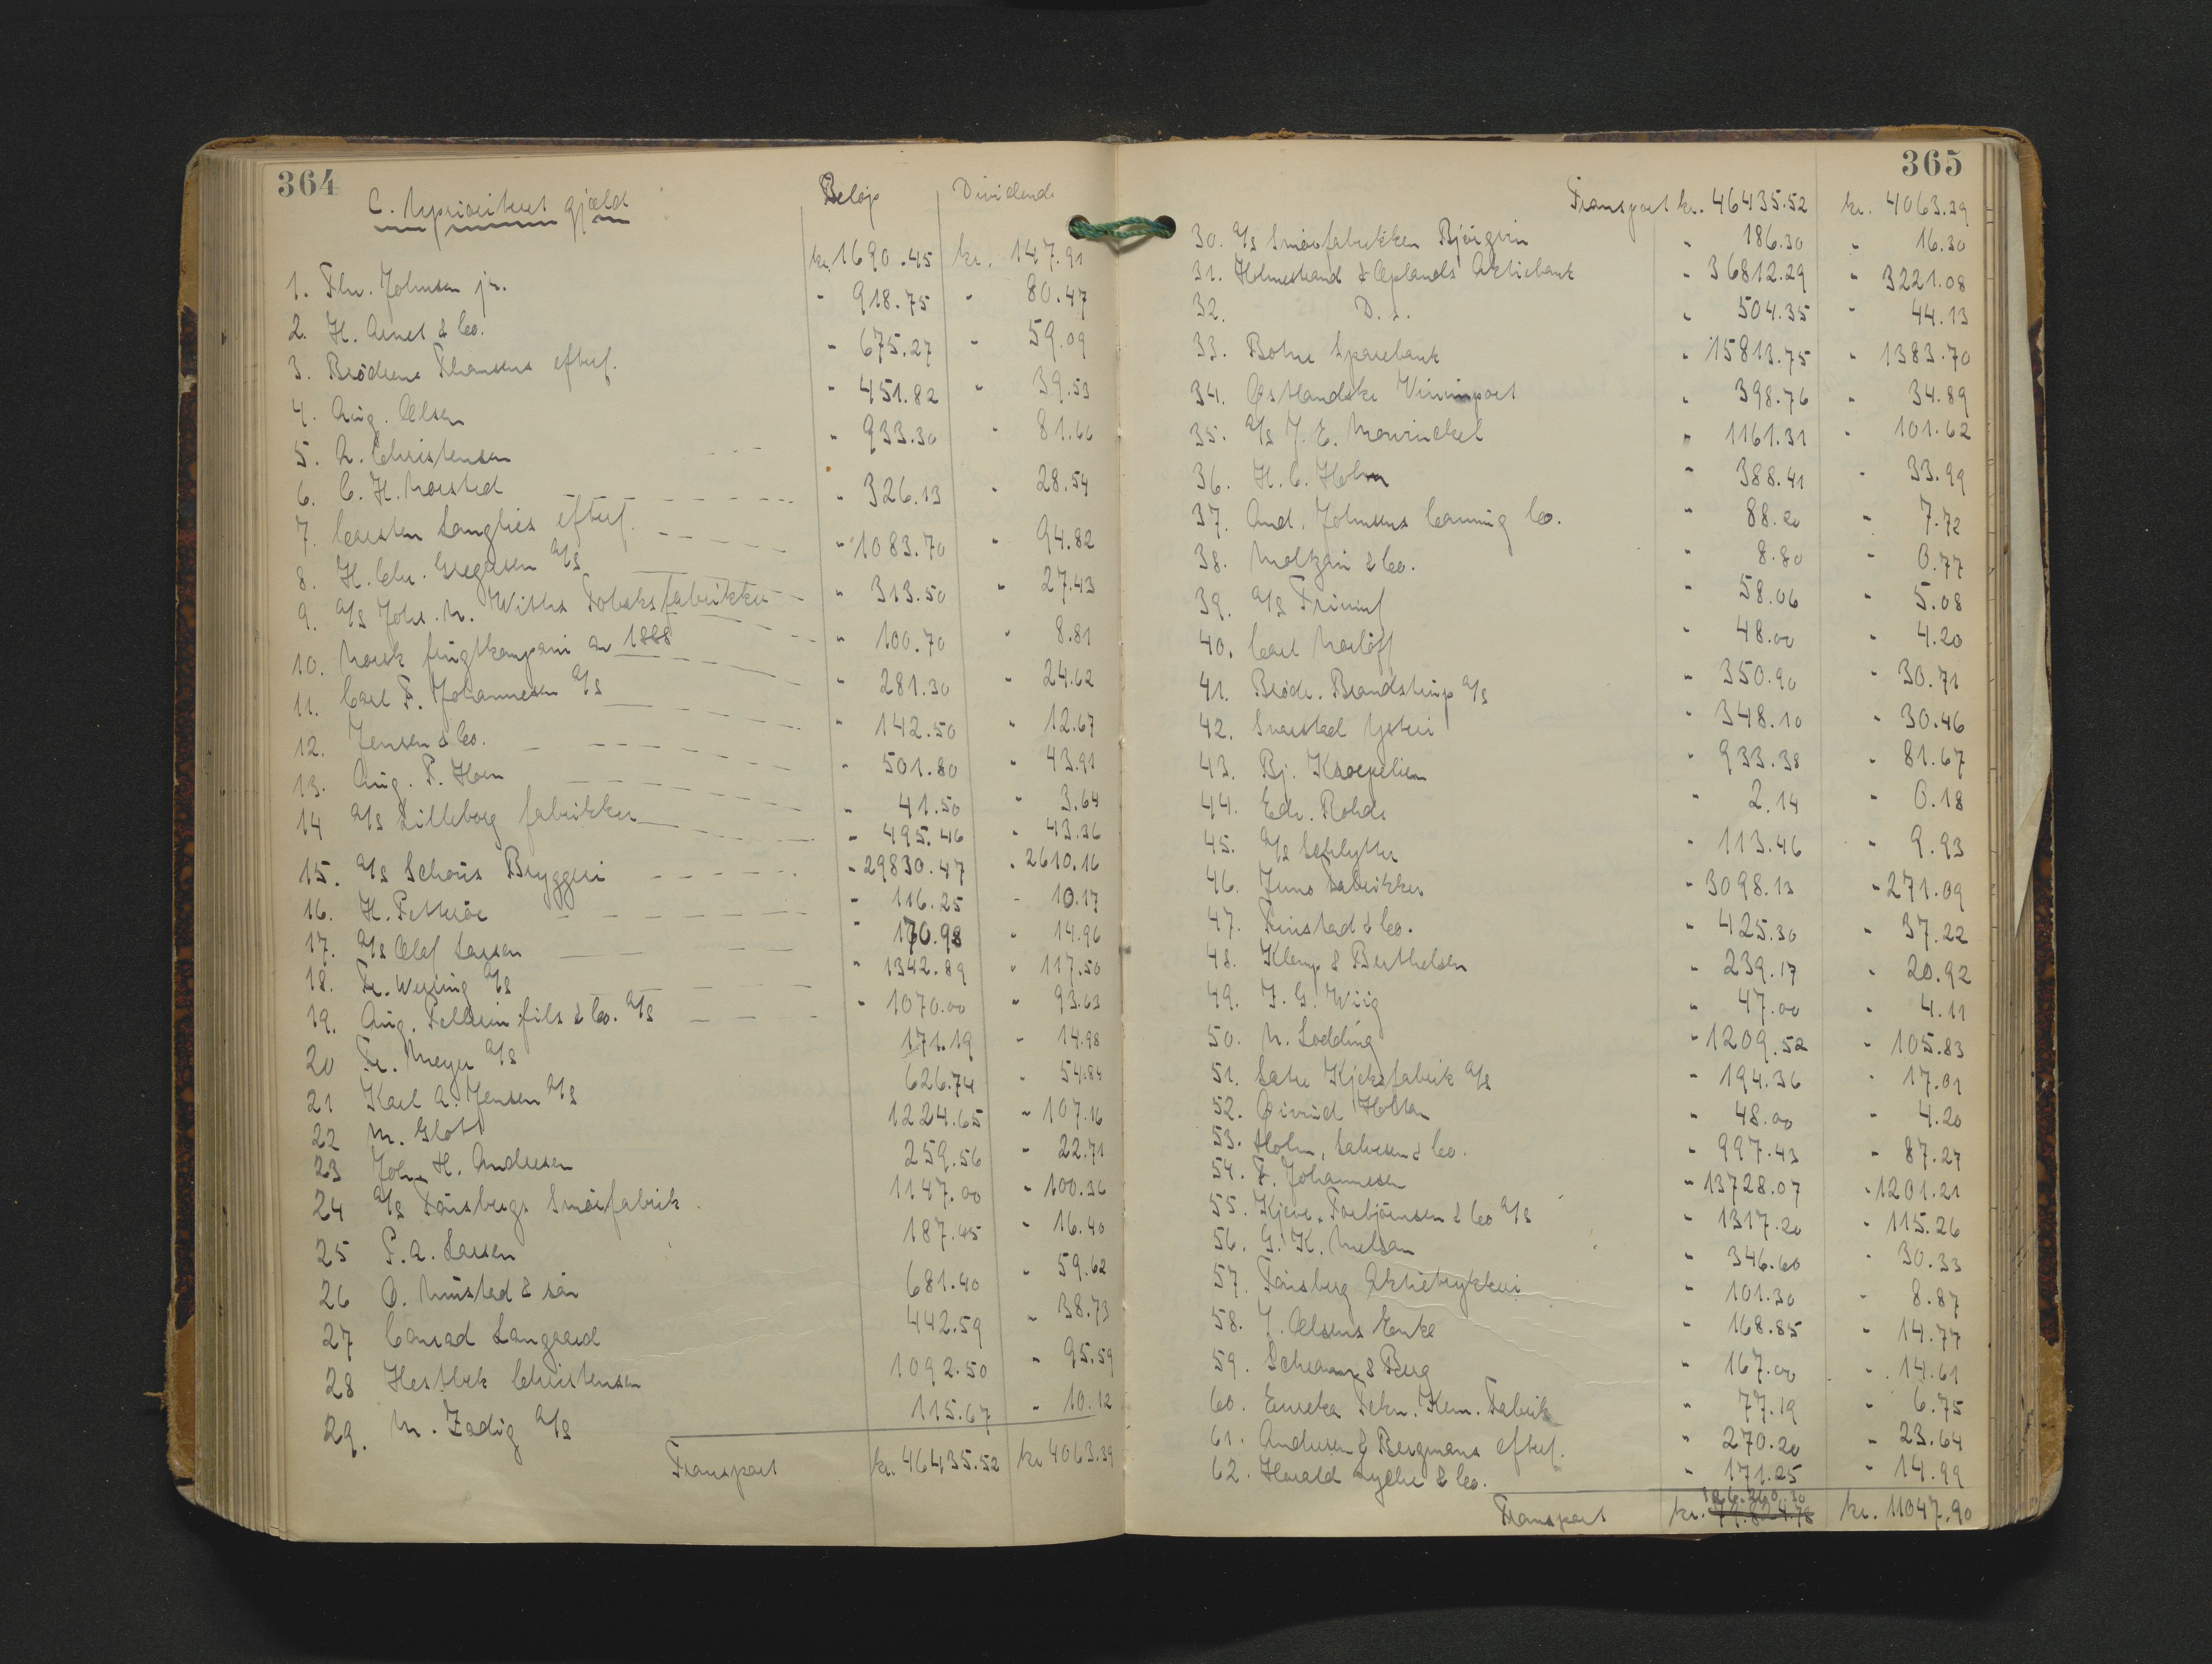 364
C. Uprioritert gjæld Beløp Dividende
1. Thv. Johnsen jr. kr. 1690.45 kr. 147.91
2. H. Arnet & Co. " 918.75 " 80.47
3. Brödrene Thansens efterf. " 675.27 " 59.09
4. Aug. Olsen " 451.82 " 39.53
5. A. Christensen " 933.30 " 81.66
6. C. H. Morsted " 326.13 " 28.54
7. Carsten Langlies efterf. " 1083.70 " 94.82
8. H. Chr. Gregersen A/S " 313.50 " 27.43
9. A/S Johs. N. Withs Tobaksfabrikker " 100.70 " 8.81
10. Norsk frugtkompani av 1888 " 281.30 " 24.62
11. Carl F. Johannesen A/S " 142.50 " 12.67
12. Jensen & Co. " 501.80 " 43.91
13. Aug. F. Hoen " 41.50 " 3.64
14 A/S Lilleborg fabrikker " 495.46 " 43.36
15. A/S Schous Bryggeri " 29830.47 " 2610.16
16. H. Petterøe " 116.25 " 10.17
17. A/S Olaf Larsen " 170.98 " 14.96
18. Fr. Wering A/S " 1342.89 " 117.50
19. Aug. Pellerin fils & Co. A/S " 1070.00 " 93.63
20 Fr. Meyer A/S 171.19 " 14.98
21 Karl A. Jensen A/S 626.74 " 54.84
22 M. Glott 1224.65 " 107.16
23 Joh. H. Andresen 259.56 " 22.71
24 A/S Tönsbergs Smörfabrik 1147.00 " 100.36
25 P. A. Larsen 187.45 " 16.40
26 O. Mustad & sön 681.40 " 59.62
27 Conrad Langaard 442.59 " 38.73
28 Hestbek Christensen 1092.50 " 95.59
29. M. Zadig A/S 115.67 " 10.12
Transport kr. 46435.52 kr 4063.39
365
Transport kr. 46435.52 kr. 4063.39
30. A/S Smörfabrikken Björgvin " 186.30 " 16.30
31. Holmestrand & Oplands Aktiebank " 36812.29 " 3221.08
32. D.s. " 504.35 " 44.13
33. Botne Sparebank " 15813.75 " 1383.70
34. Østlandske Vinimport " 398.76 " 34.89
35. A/S J. E. Mowinckel " 1161.31 " 101.62
36. H. C. Holm " 388.41 " 33.99
37. And. Johnsens Canning Co. " 88.20 " 7.72
38. Moltzau & Co. " 8.80 " 0.77
39. A/S Triumf " 58.06 " 5.08
40. Carl Norlöff " 48.00 " 4.20
41. Brödr. Brandstrup A/S " 350.90 " 30.71
42. Svarstad Ysteri " 348.10 " 30.46
43. Bj. Kraepelien " 933.38 " 81.67
44. Edv. Rohde " 2.14 " 0.18
45. A/S Schlytter " 113.46 " 9.93
46. Juno fabrikker " 3098.13 " 271.09
47. Finstad & Co. " 425.30 " 37.22
48. Klemp & Berthelsen " 239.17 " 20.92
49. J. G. Wiig " 47.00 " 4.11
50. N. Lodding " 1209.52 " 105.83
51. Sætre Kjeksfabrik A/S " 194.36 " 17.01
52. Øivind Holtan " 48.00 " 4.20
53. Holm, Salvesen & Co. " 997.43 " 87.27
54. F. Johannesen " 13728.07 " 1201.21
55. Kjeve, Torbjörnsen & Co A/S " 1317.20 " 115.26
56. G. K. Melsom " 346.60 " 30.33
57. Tönsberg Aktietrykkeri " 101.30 " 8.87
58. J. Olsens Enke " 168.85 " 14.77
59. Schramm & Berg " 167.00 " 14.61
60. Eureka Tekn. Kem. Fabrik " 77.19 " 6.75
61. Andersen & Bergmans efterf. " 270.20 " 23.64
62. Harald Lyche & Co. " 171.25 " 14.99
126.260.30
Transport kr. 79.824.78 kr. 11047.90